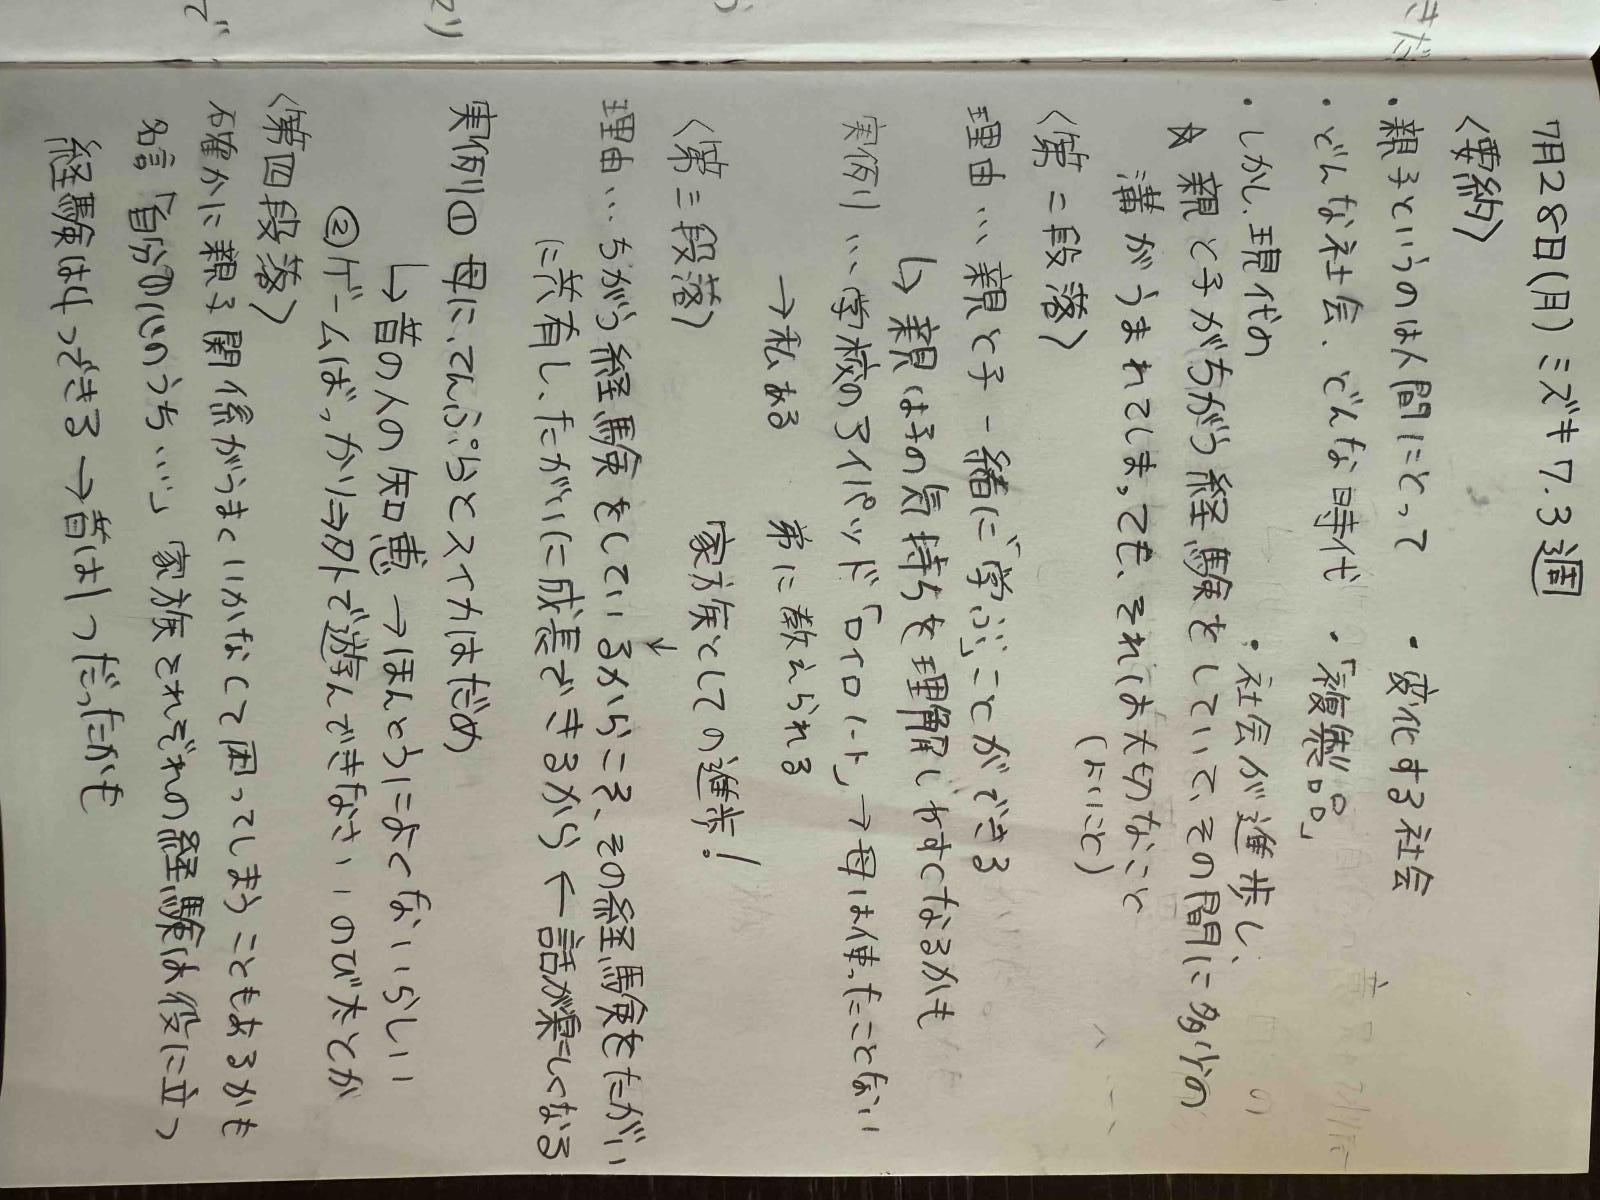 7月28日(月)ミズキ 7.3週
〈要約〉
・親子というのは人間にとって ・変化する社会
・どんな社会、どんな時代 ・「複製品」
・しかし、現代の ・社会が進歩し、
☆親と子がちがう経験をしていて、その間に多少の
溝がうまれてしまっても、それは大切なこと
(よいこと)
〈第二段落〉
理由…親と子一緒に「学ぶ」ことができる
↳親は子の気持ちを理解しやすくなるかも
実例…学校のアイパッド「ロイロノート」→母は使ったことない
→私ある 弟に教えられる
〈第三段落〉 家族としての進歩!
理由…ちがう経験をしているからこそ、その経験をたがい
に共有し、たがいに成長できるから ←話が楽しくなる
実例① 母に、てんぷらとスイカはだめ
↳昔の人の知恵→ほんとうによくないらしい
②ゲームばっかり⇒外で遊んできなさいのび太とか
〈第四段落〉
確かに親子関係がうまくいかなくて困ってしまうこともあるかも
名言「自分の心のうち…」家族それぞれの経験は役に立つ
経験は4つできる→昔は1つだったかも